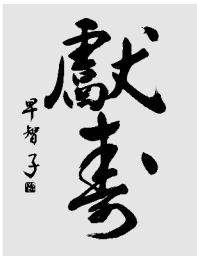 獻壽
早智子